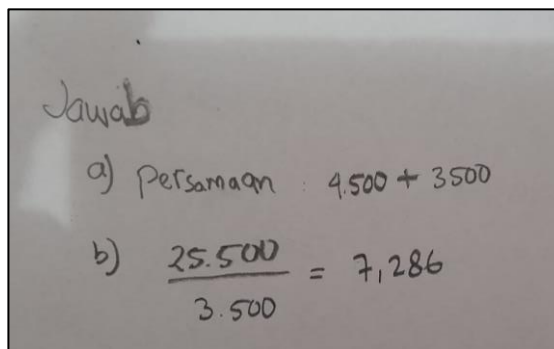 Jawab
a) Persamaan : 4.500 + 3500
b) 25.500
3.500
= 7,286